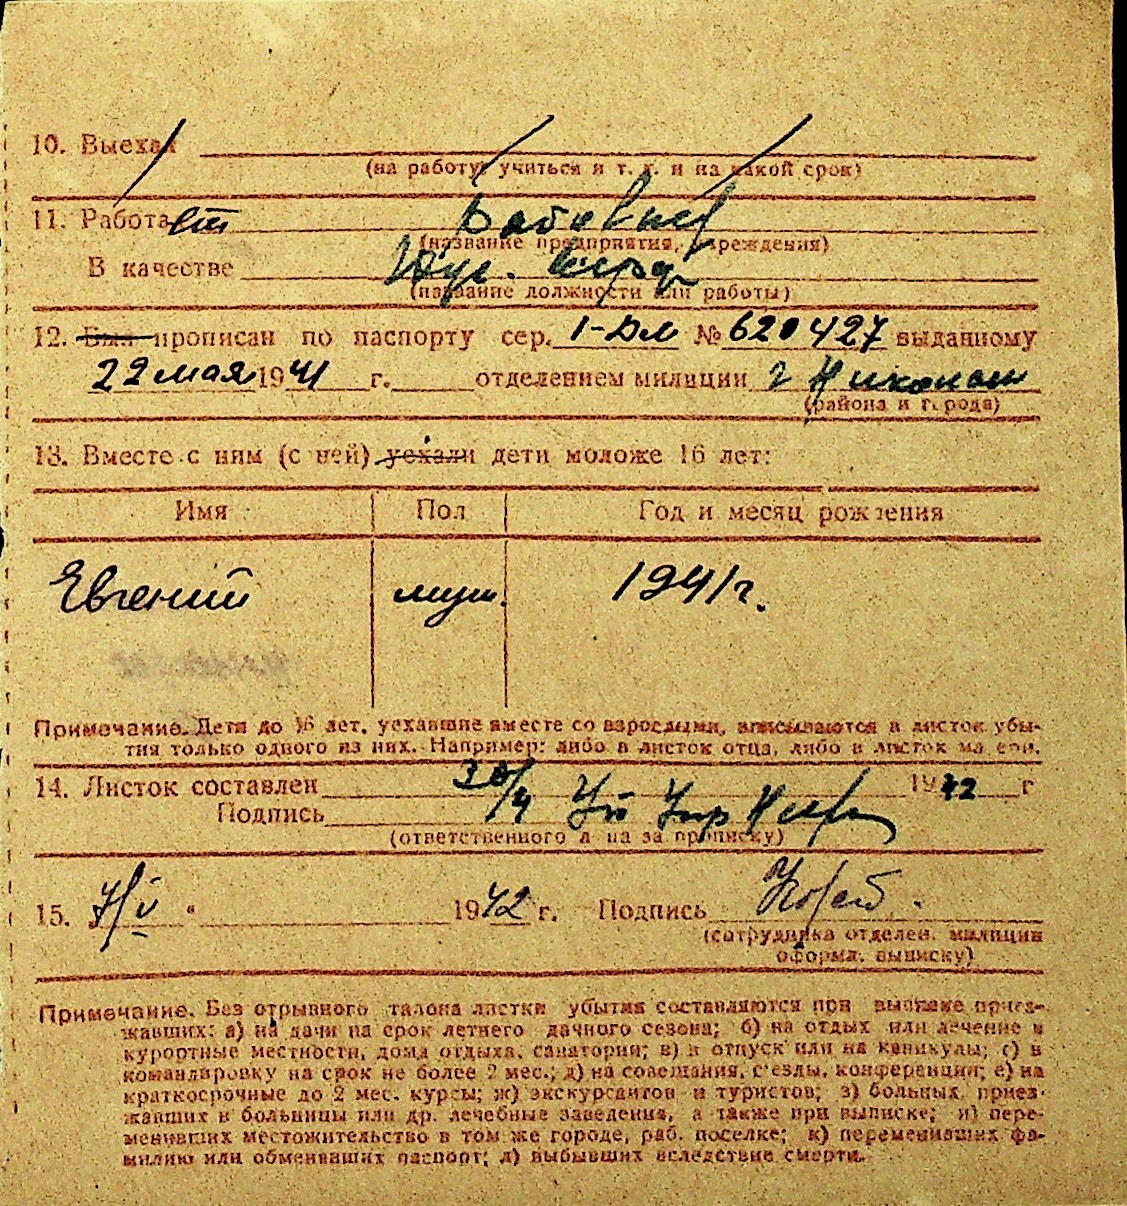 10. Выехал
(на работу, учиться и т. д. и на какой срок)
11. Работает
(название предприятия, учреждения)
В качестве
(название должности или работы)
12. Был прописан по паспорту сер. 1-ДМ № 620427 выданному
22 мая 1941 г. отделением милиции г
(района и города)
13. Вместе с ним (с ней) уехали дети моложе 16 лет:
Имя Пол Год и месяц рождения
Евгений муж. 1941 г.
Примечание. Дети до 16 лет, уехавшие вместе со взрослыми, вписываются в листок убы-
тия только одного из них. Например: либо в листок отца, либо в листок матери.
14. Листок составлен 30/4 1942 г
Подпись
(ответственного лица за прописку)
15. 1942 г. Подпись
(сотрудника отделен. милиции
оформл. выписку)
Примечание. Без отрывного талона листки убытия составляются при выписке приез-
жавших: а) на дачи на срок летнего дачного сезона; б) на отдых или лечение в
курортные местности, дома отдыха, санатории; в) в отпуск или на каникулы; с) в
командировку на срок не более 2 мес.; д) на совещания, с'езды, конференции; е) на
краткосрочные до 2 мес. курсы; ж) экскурсантов и туристов; з) больных, приез-
жавших в больницы или др. лечебные заведения, а также при выписке; и) пере-
менивших местожительство в том же городе, раб. поселке; к) переменивших фа-
милию или обменявших паспорт; л) выбывших вследствие смерти.